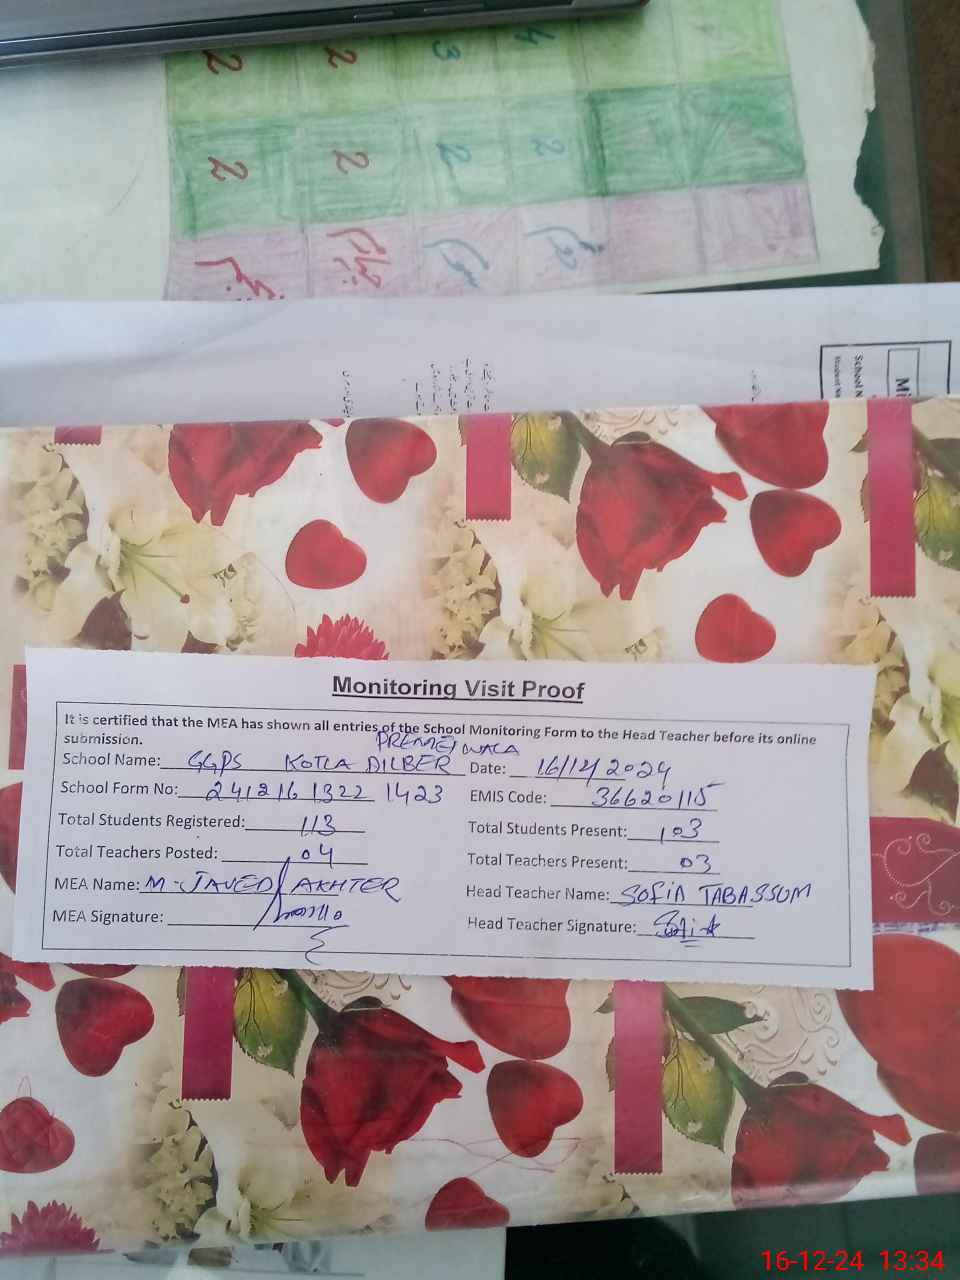 2 2 3 4
2 2 2 2
School N
Student Na
Mi
Monitoring Visit Proof
It is certified that the MEA has shown all entries of the School Monitoring Form to the Head Teacher before its online
submission.
School Name: GGPS KOTLA DILBER WALA Date: 16/12/2024
School Form No: 241216 1322 1423 EMIS Code: 36620115
Total Students Registered: 113 Total Students Present: 103
Total Teachers Posted: 04 Total Teachers Present: 03
MEA Name: M-JAVED AKHTER Head Teacher Name: SOFIA TABASSUM
MEA Signature: Head Teacher Signature:
16-12-24 13:34